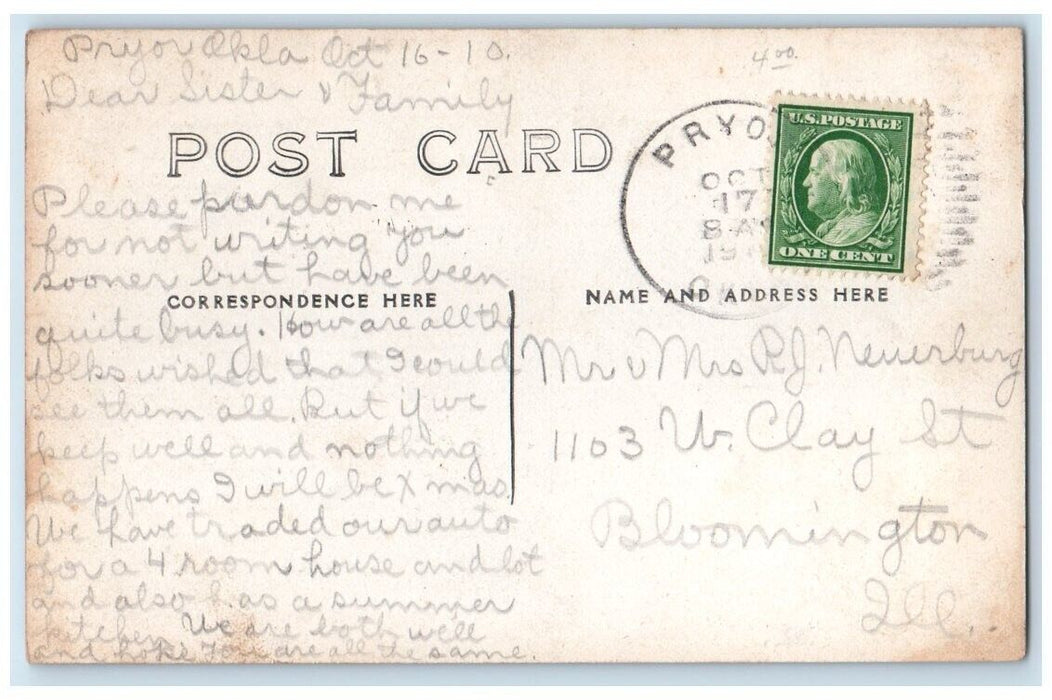 Pryor Okla Oct 16-10.
Dear Sister & Family
POST CARD
Please pardon me
for not writing you
sooner but have been
CORRESPONDENCE HERE
quite busy. How are all the
folks wished that I could
see them all. But if we
keep well and nothing
happens I will be Xmas
We have traded our auto
for a 4 room house and lot
and also has a summer
kitchen We are both well
and hope you are all the same.
4.00
PRYO
OCT
17
8-A
19
U.S. POSTAGE
ONE CENT
NAME AND ADDRESS HERE
Mr & Mrs R.J. Neuerburg
1103 W. Clay St
Bloomington
Ill.